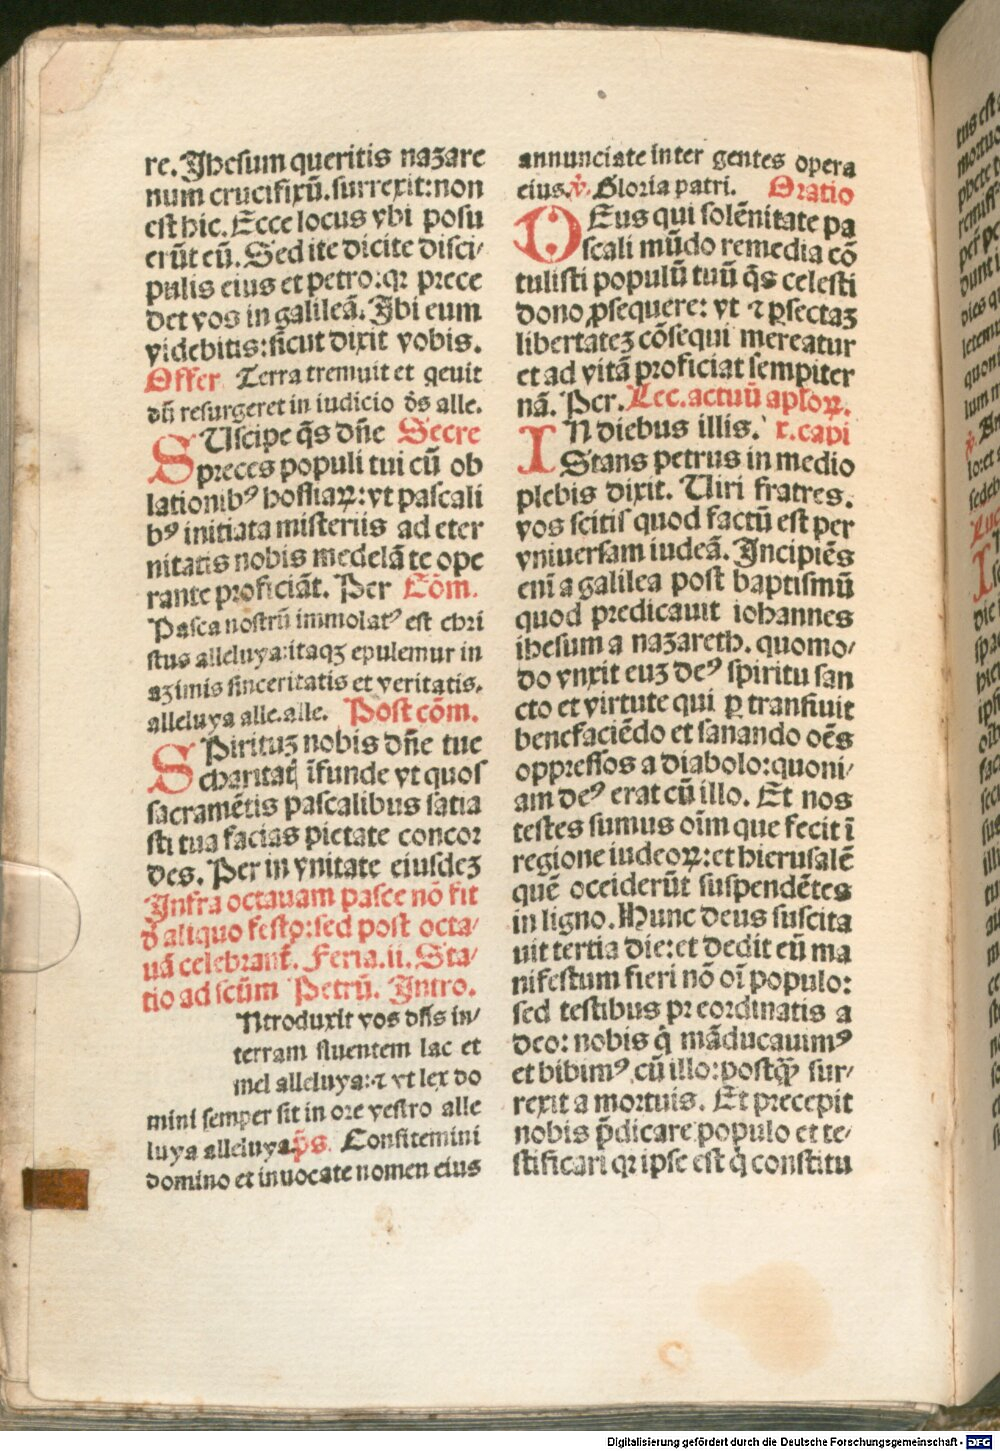 re. Jhesum queritis nazare
num crucifixū. surrexit: non
est hic. Ecce locus vbi posu
erūt eū. Sed ite dicite disci/
pulis eius et petro: qꝛ prece
det vos in galileā. Jbi eum
videbitis: sicut dixit vobis.
Offer Terra tremuit et qeuit
dū resurgeret in iudicio ds̄ alle.
SUscipe qs̄ dn̄e Secre
preces populi tui cū ob
lationibꝰ hostiaꝝ: vt pascali
bꝰ initiata misteriis ad eter
nitatis nobis medelā te ope
rante proficiāt. Per Cōm.
Pasca nostrū immolatꝰ est chri
stus alleluya: itaqꝫ epulemur in
azimis sinceritatis et veritatis.
alleluya alle. alle. Post cōm.
SPirituꝫ nobis dn̄e tue
charitatꝭ īfunde vt quos
sacramētis pascalibus satia
sti tua facias pietate concor
des. Per in vnitate eiusdeꝫ
Jnfra octauam pasce nō fit
d̄ aliquo festo: sed post octa/
uā celebrant̄. Feria. ii. Sta/
tio ad scūm Petrū. Jntro.
Ntroduxit vos dn̄s in/
terram fluentem lac et
mel alleluya: ⁊ vt lex do
mini semper sit in ore vestro alle
luya alleluya p̄s. Confitemini
domino et inuocate nomen eius
annunciate inter gentes opera
eius. ℣. Gloria patri. Oratio
DEus qui solēnitate pa
scali mūdo remedia cō
tulisti populū tuū qs̄ celesti
dono ꝓsequere: vt ⁊ ꝑfectaꝫ
libertateꝫ cōsequi mereatur
et ad vitā proficiat sempiter
nā. Per. Lec. actuū apl'oꝝ.
IN diebus illis. x. capi
Stans petrus in medio
plebis dixit. Uiri fratres.
vos scitis quod factū est per
vniuersam iudeā. Jncipiēs
eni a galilea post baptismū
quod predicauit iohannes
ihesum a nazareth. quomo/
do vnxit euꝫ deꝰ spiritu san
cto et virtute qui ꝑtransiuit
benefaciēdo et sanando oēs
oppressos a diabolo: quoni/
am deꝰ erat cū illo. Et nos
testes sumus oīm que fecit ī
regione iudeoꝝ: et hierusalē
quē occiderūt suspendētes
in ligno. Hunc deus suscita
uit tertia die: et dedit eū ma
nifestum fieri nō oī populo:
sed testibus preordinatis a
deo: nobis q̇ māducauimꝰ
et bibimꝰ cū illo: postqꝫ̄ sur/
rexit a mortuis. Et precepit
nobis p̄dicare populo et te/
stificari qꝛ ipse est q̇ constitu
Digitalisierung gefördert durch die Deutsche Forschungsgemeinschaft - DFG